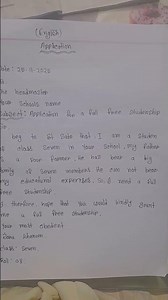 (English)
Application
Date: 20-11-2022
The headmaster
School's name
Subject: Application for a full free studentship
Sir,
I beg to state that I am a student
of class seven in your school. My father
is a poor farmer
family of seven members. He can not bear
my educational expenses. So, I need a full
free studentship.
I therefore hope that you would kindly grant
me a full free studentship.
Your most obedient
Class: Seven
Roll: 18